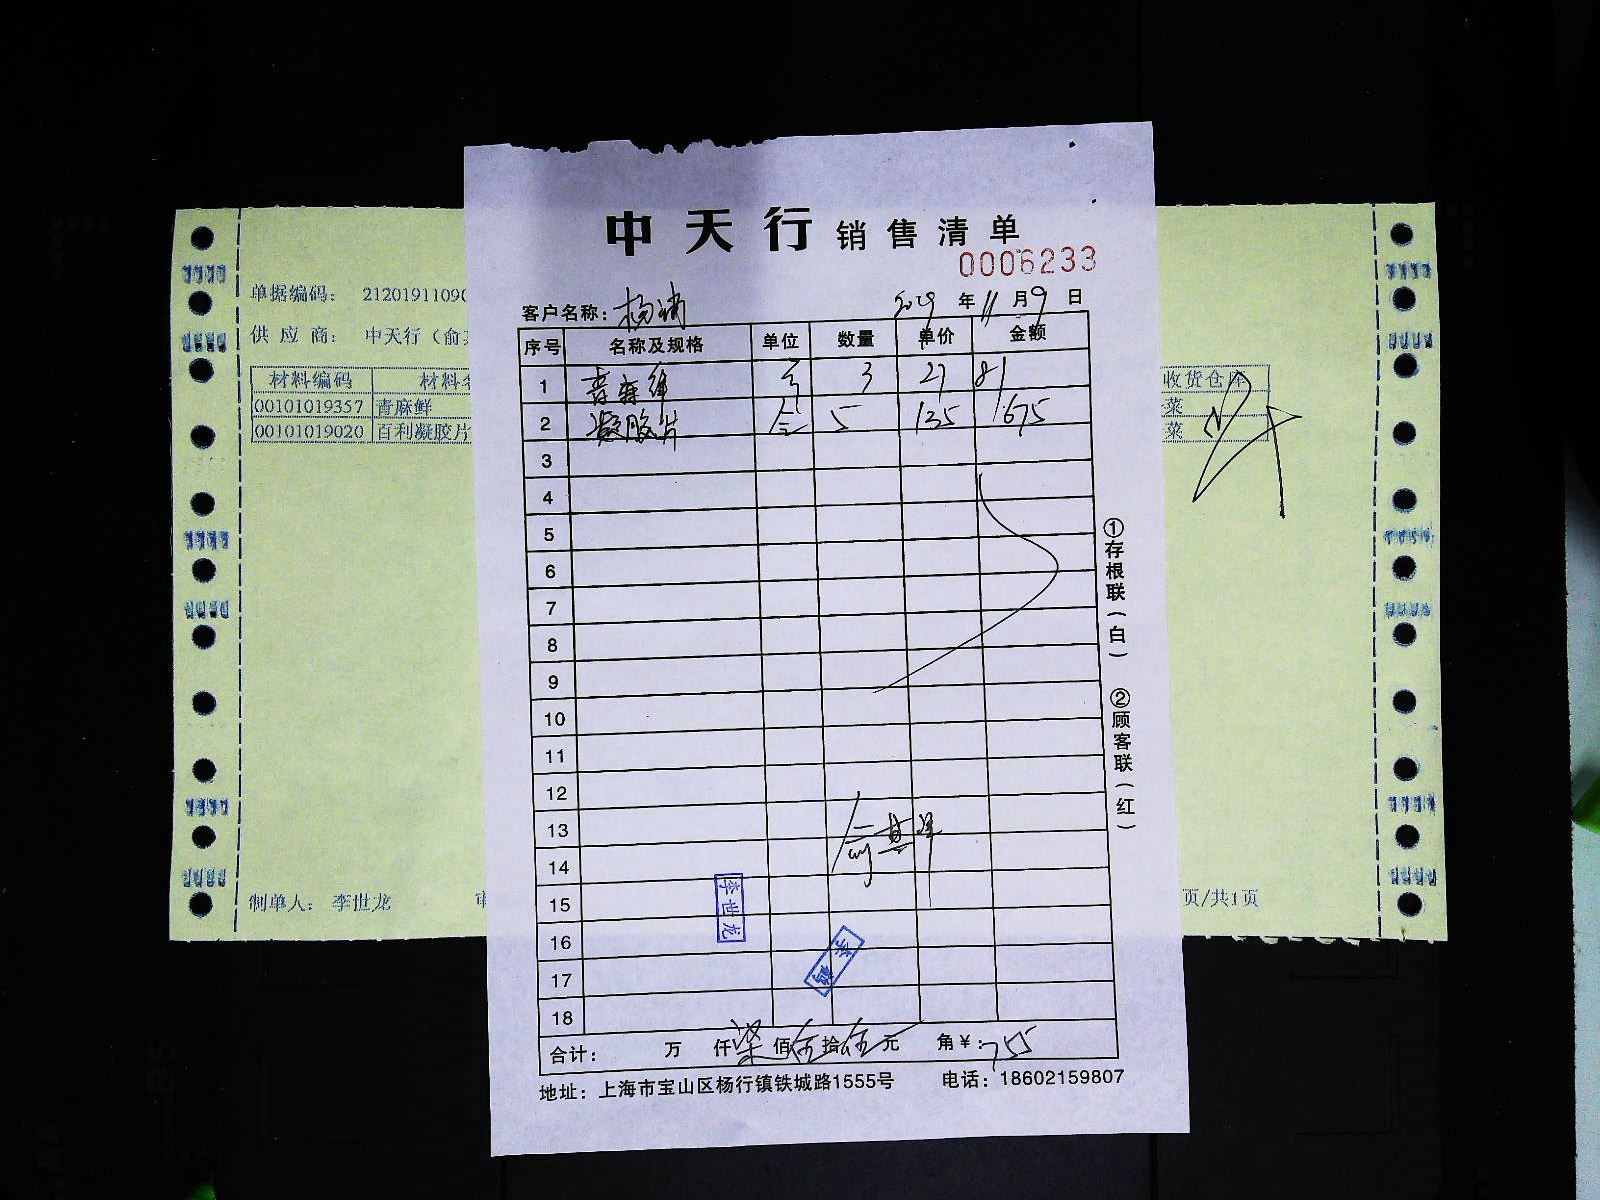 中天行 销售清单
0006233
客户名称: 杨浦 2019 年 11 月 9 日
序号 名称及规格 单位 数量 单价 金额
1 青麻鲜 3 27 81
2 凝胶片 盒 5 135 675
3
4
5
6
7
8
9
10
11
12
13
14
15
16
17
18
俞其
李世龙
合计: 万 仟 柒 佰 伍 拾 伍 元 角 ¥: 755
地址: 上海市宝山区杨行镇铁城路1555号 电话: 18602159807
①存根联(白)
②顾客联(红)
单据编码: 2120191109
供应商: 中天行(俞
材料编码 材料 收货仓库
00101019357 青麻鲜 菜
00101019020 百利凝胶片 菜
制单人: 李世龙 审 页/共1页